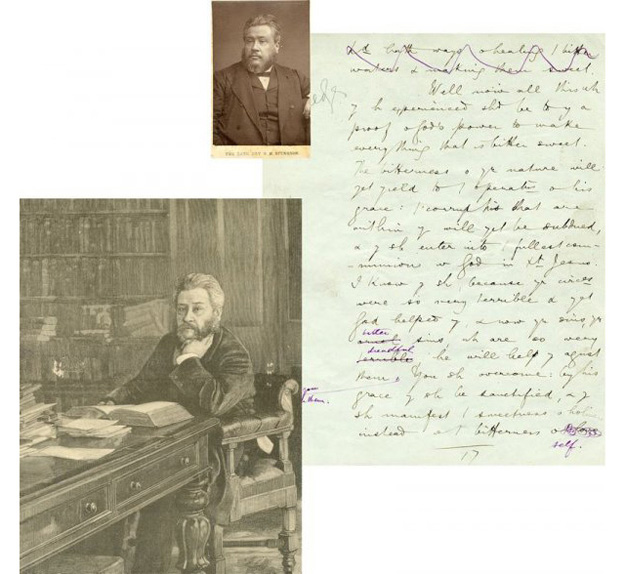 THE LATE REV C H SPURGEON
ways o healing / bitter
waters & making them sweet.
Well now all this wh
y h experienced shd be to y a
proof o God's power to make
everything that is bitter sweet.
The bitterness o yr nature will
yet yield to / operatn o his
grace: / corrup that are
within y will yet be subdued,
& y sh enter into / fullest com-
-munion w God in Xt Jesus.
I know y sh, because yr circes
were so very terrible & yet
God helped y, & now yr sins, yr
bitter
sins, wh are so very
dreadful
terrible he will help y agnst
them. You sh overcome: by his
them.
grace y sh be sanctified, & y
sh manifest / sweetness o
instead o / bitterness o
self.
17